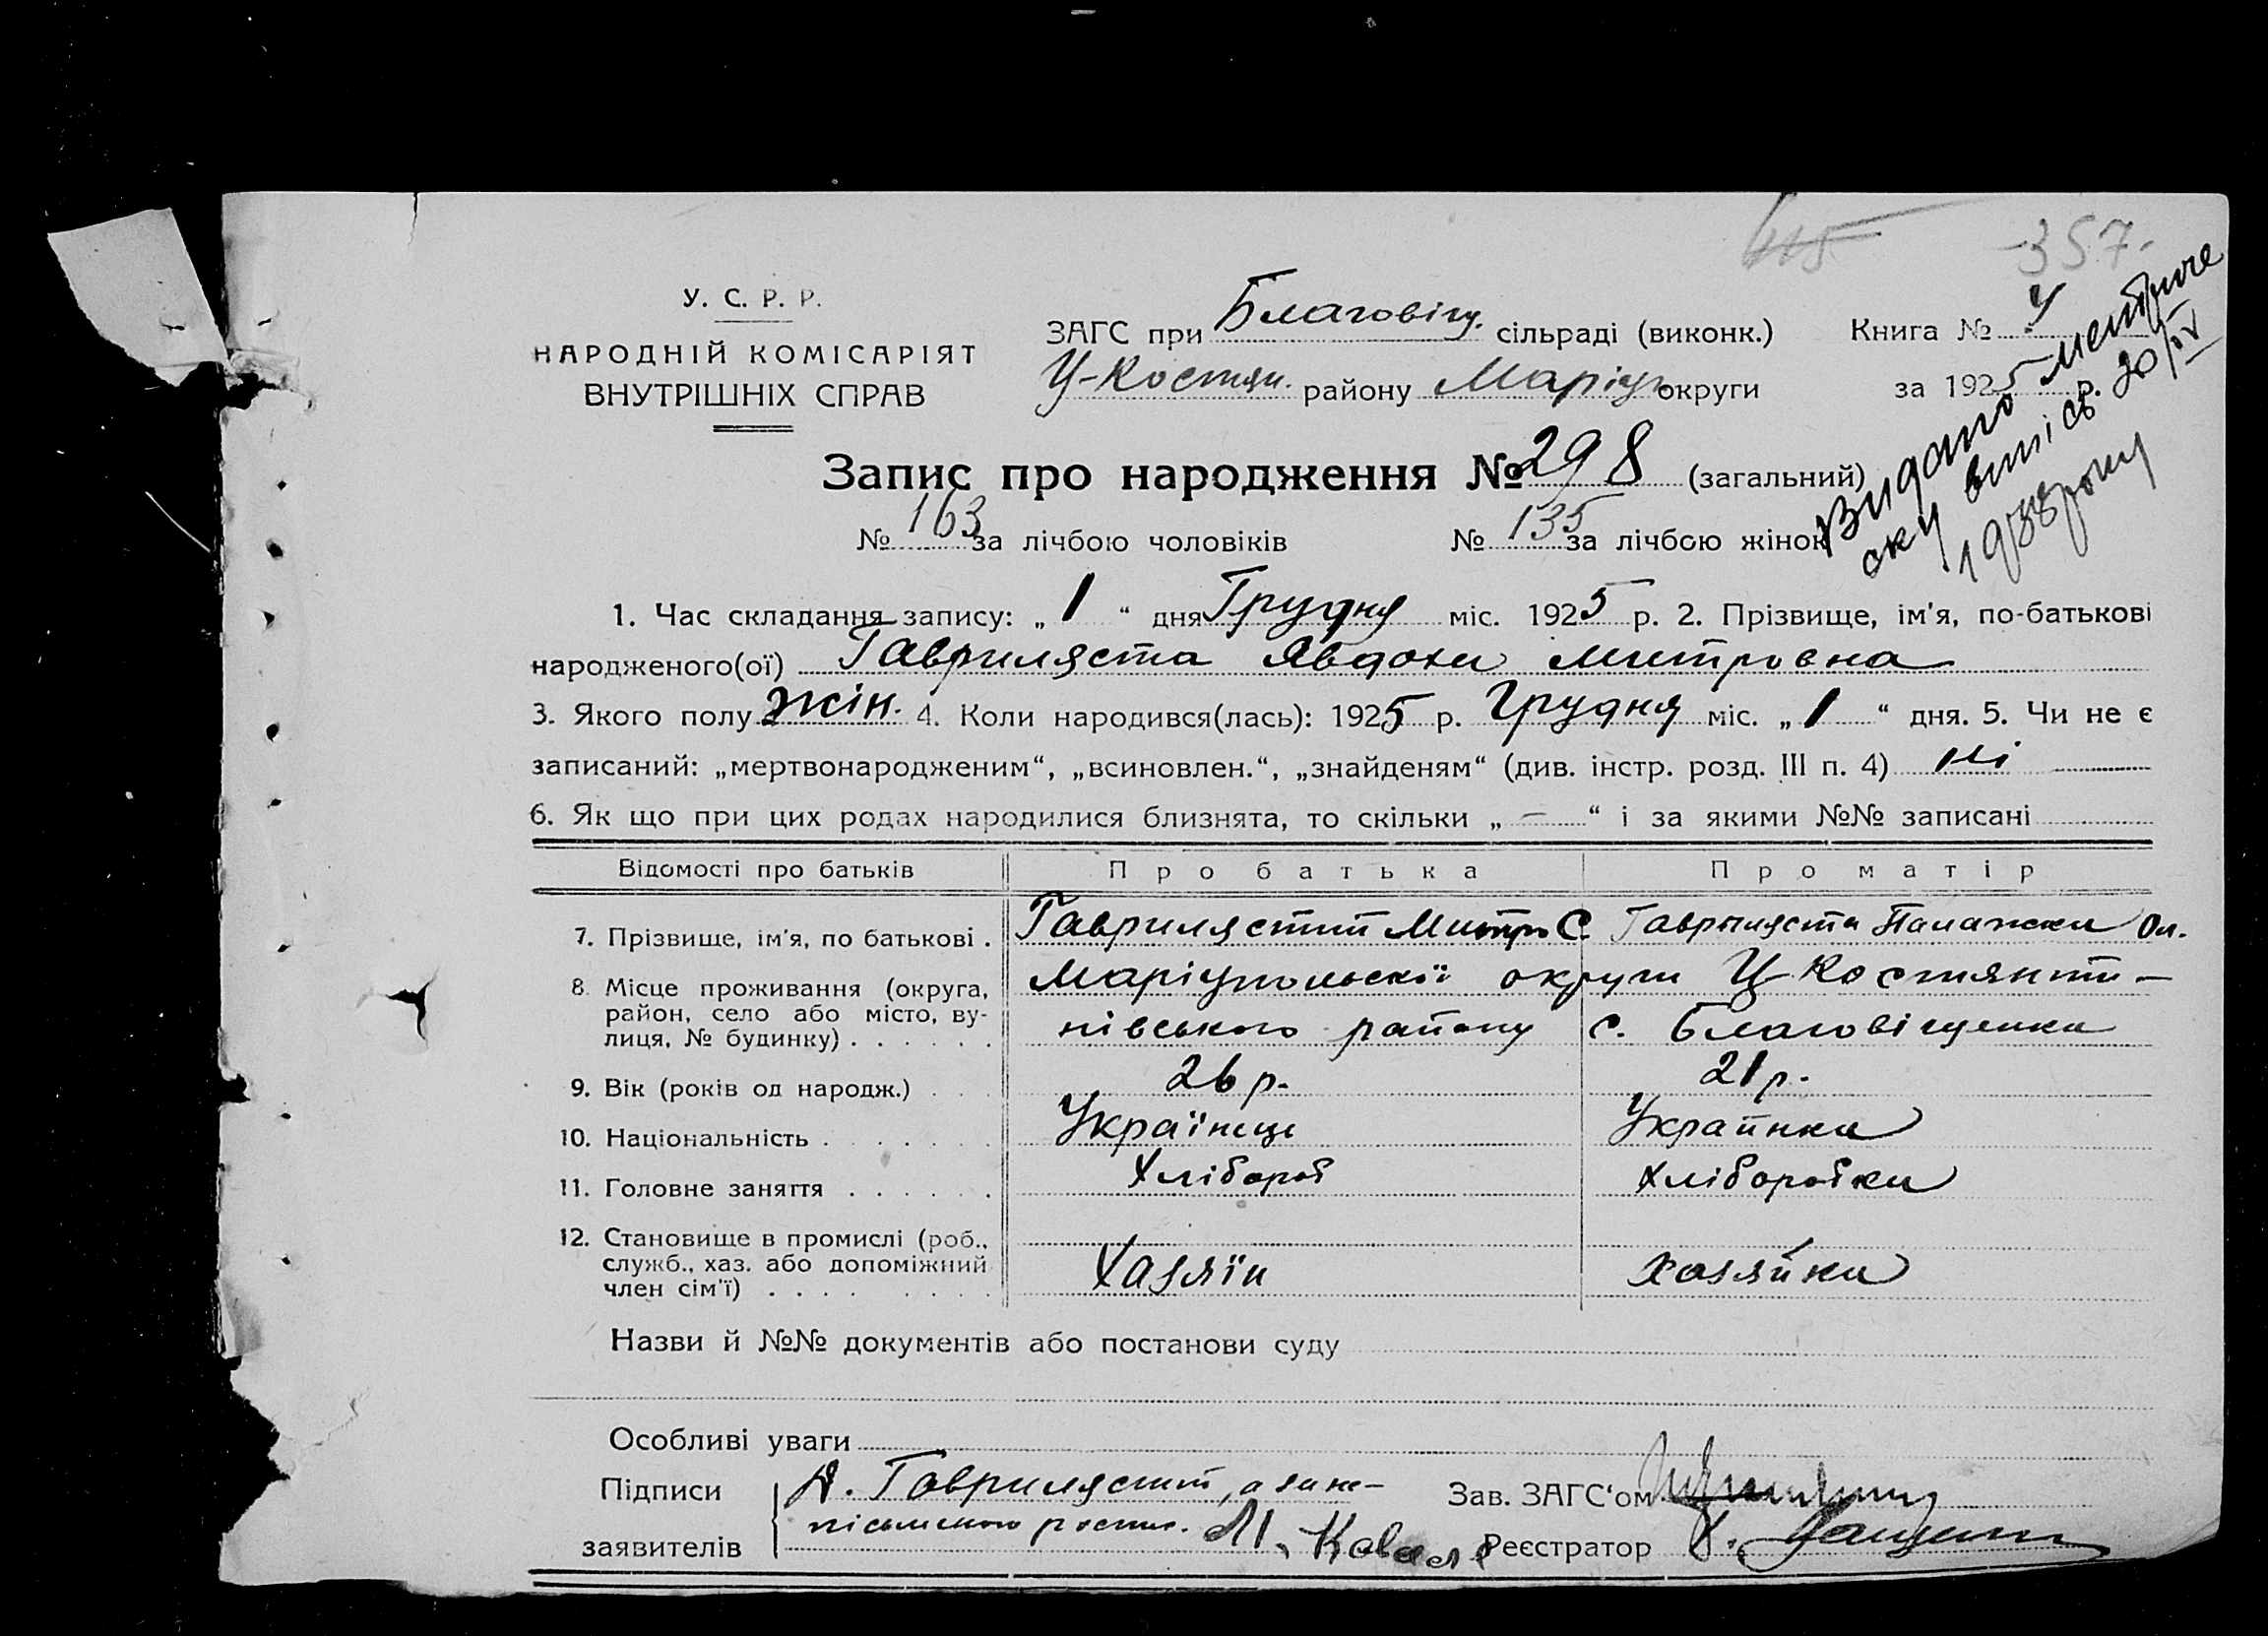 415
357.
У. С. Р. Р.
НАРОДНІЙ КОМІСАРІЯТ
ВНУТРІШНІХ СПРАВ
ЗАГС при Благовіщ. сільраді (виконк.) Книга №
У-Костян. району Маріуп округи за 1925 р.
Видано метриче
ску випись 20/IV
1938 року
Запис про народження № 298 (загальний)
№ 163 за лічбою чоловіків № 135 за лічбою жінок
1. Час складання запису: „ 1 “ дня Грудня міс. 1925 р. 2. Прізвище, ім'я, по-батькові
народженого(ої) Гавриляста Явдоха Митровна
3. Якого полу жін. 4. Коли народився(лась): 1925 р. Грудня міс. „ 1 “ дня. 5. Чи не є
записаний: „мертвонародженим“, „всиновлен.“, „знайденям“ (див. інстр. розд. III п. 4) ні
6. Як що при цих родах народилися близнята, то скільки „ – “ і за якими №№ записані
Відомості про батьків Про батька Про матір
7. Прізвище, ім'я, по батькові . Гаврилястий Митро С. Гавриляста Палажка Ол.
8. Місце проживання (округа, район, село або місто, ву- лиця, № будинку) . . . . . .
Маріупольської округи У Костянти-
нівського району с. Благовіщенка
9. Вік (років од народж.) . . . 26 р. 21 р.
10. Національність . . . . . . . Українець Українка
11. Головне заняття . . . . . . Хлібороб Хліборобка
12. Становище в промислі (роб., служб., хаз. або допоміжний член сім'ї) . . . . . . . . Хазяїн хазяйка
Назви й №№ документів або постанови суду
Особливі уваги
Підписи заявителів
Д. Гаврилястий, а за не-
письменого роспис. М. Коваль
Зав. ЗАГС‘ом
Реєстратор